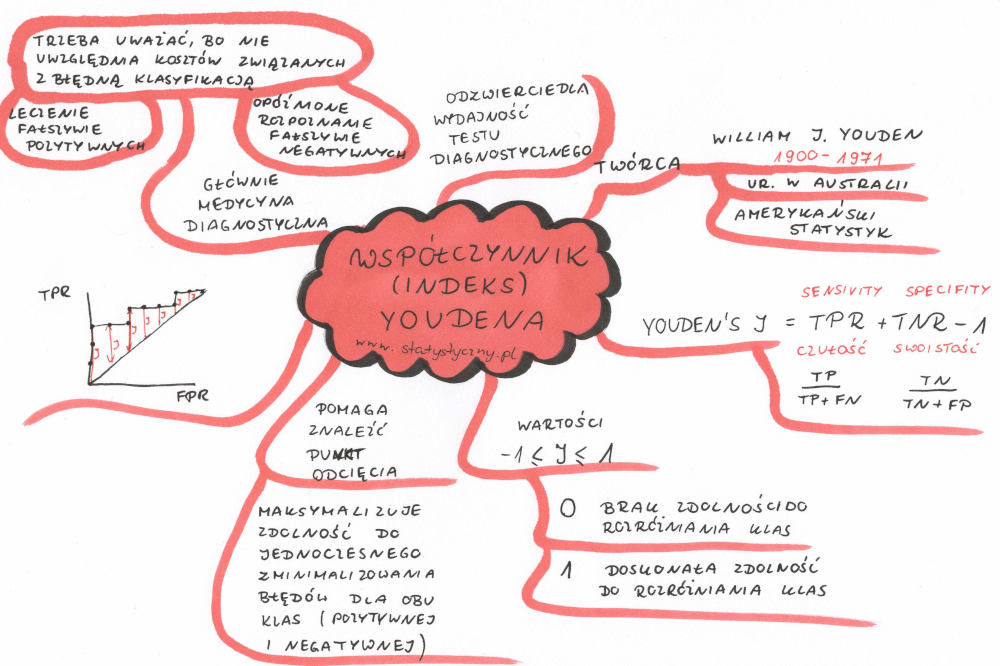 TRZEBA UWAŻAĆ, BO NIE
UWZGLĘDNIA KOSZTÓW ZWIĄZANYCH
Z BŁĘDNĄ KLASYFIKACJĄ
LECZENIE
FAŁSZYWIE
POZYTYWNYCH
OPÓŹNIONE
ROZPOZNANIE
FAŁSZYWIE
NEGATYWNYCH
GŁÓWNIE
MEDYCYNA
DIAGNOSTYCZNA
ODZWIERCIEDLA
WYDAJNOŚĆ
TESTU
DIAGNOSTYCZNEGO
TWÓRCA
WILLIAM J. YOUDEN
1900-1971
UR. W AUSTRALII
AMERYKAŃSKI
STATYSTYK
WSPÓŁCZYNNIK
(INDEKS)
YOUDENA
www.statystyczny.pl
TPR
J J J J J J J
FPR
SENSIVITY SPECIFITY
YOUDEN'S J = TPR + TNR - 1
CZUŁOŚĆ SWOISTOŚĆ
TP TN
TP+FN TN+FP
POMAGA
ZNALEŹĆ
PUNKT
ODCIĘCIA
MAKSYMALIZUJE
ZDOLNOŚĆ DO
JEDNOCZESNEGO
ZMINIMALIZOWANIA
BŁĘDÓW DLA OBU
KLAS (POZYTYWNEJ
I NEGATYWNEJ)
WARTOŚCI
-1 ≤ J ≤ 1
0 BRAK ZDOLNOŚCI DO
ROZRÓŻNIANIA KLAS
1 DOSKONAŁA ZDOLNOŚĆ
DO ROZRÓŻNIANIA KLAS